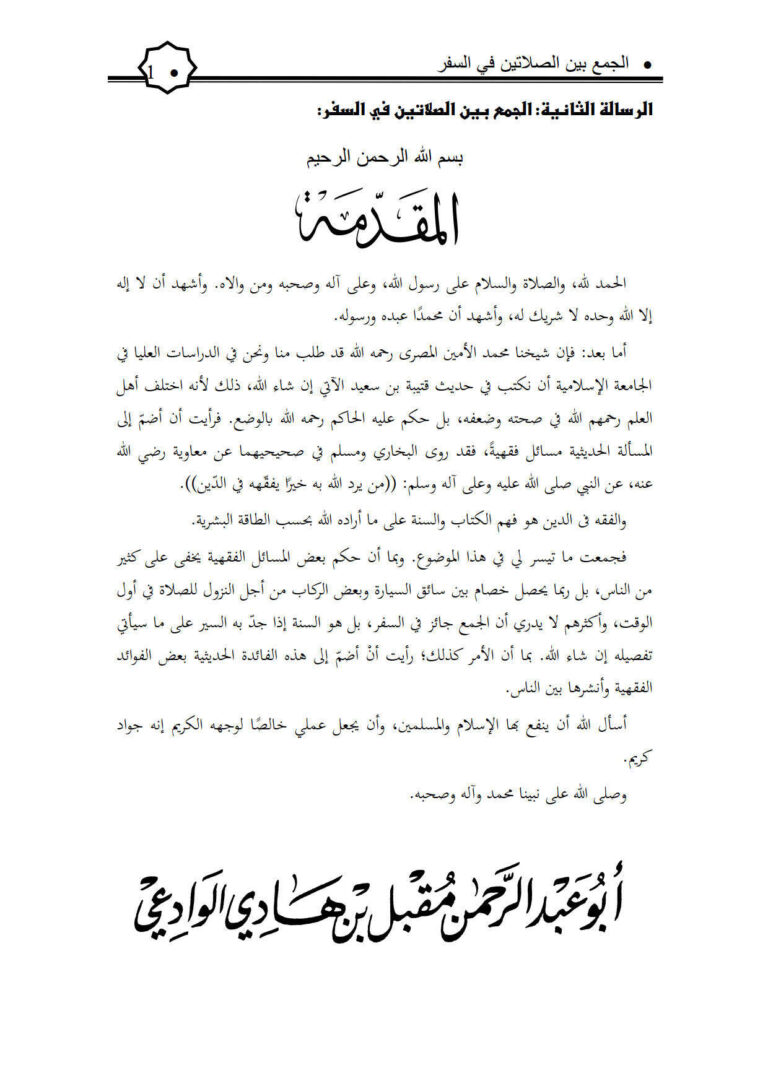 • الجمع بين الصلاتين في السفر
1 •
الرسالة الثانية: الجمع بين الصلاتين في السفر:
بسم الله الرحمن الرحيم
المقَدّمَة
الحمد لله، والصلاة والسلام على رسول الله، وعلى آله وصحبه ومن والاه. وأشهد أن لا إله
إلا الله وحده لا شريك له، وأشهد أن محمدًا عبده ورسوله.
أما بعد: فإن شيخنا محمد الأمين المصرى رحمه الله قد طلب منا ونحن في الدراسات العليا في
الجامعة الإسلامية أن نكتب في حديث قتيبة بن سعيد الآتي إن شاء الله، ذلك لأنه اختلف أهل
العلم رحمهم الله في صحته وضعفه، بل حكم عليه الحاكم رحمه الله بالوضع. فرأيت أن أضمّ إلى
المسألة الحديثية مسائل فقهيةً، فقد روى البخاري ومسلم في صحيحيهما عن معاوية رضي الله
عنه، عن النبي صلى الله عليه وعلى آله وسلم: ((من يرد الله به خيرًا يفقّهه في الدّين)).
والفقه فى الدين هو فهم الكتاب والسنة على ما أراده الله بحسب الطاقة البشرية.
فجمعت ما تيسر لي في هذا الموضوع. وبما أن حكم بعض المسائل الفقهية يخفى على كثير
من الناس، بل ربما يحصل خصام بين سائق السيارة وبعض الركاب من أجل النزول للصلاة في أول
الوقت، وأكثرهم لا يدري أن الجمع جائز في السفر، بل هو السنة إذا جدّ به السير على ما سيأتي
تفصيله إن شاء الله. بما أن الأمر كذلك؛ رأيت أنْ أضمّ إلى هذه الفائدة الحديثية بعض الفوائد
الفقهية وأنشرها بين الناس.
أسأل الله أن ينفع بها الإسلام والمسلمين، وأن يجعل عملي خالصًا لوجهه الكريم إنه جواد
كريم.
وصلى الله على نبينا محمد وآله وصحبه.
أَبُو عَبْد الرَّحْمٰن مُقْبل بْن هَادِي الوَادِعِيّ